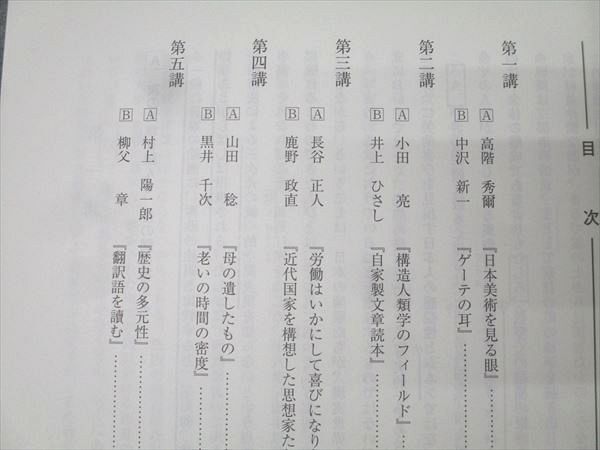 目次
第一講
A 高階 秀爾 『日本美術を見る眼』…………
B 中沢 新一 『ゲーテの耳』…………
第二講
A 小田 亮 『構造人類学のフィールド』……
B 井上 ひさし 『自家製文章読本』…………
第三講
A 長谷 正人 『労働はいかにして喜びになり
B 鹿野 政直 『近代国家を構想した思想家た
第四講
A 山田 稔 『母の遺したもの』…………
B 黒井 千次 『老いの時間の密度』…………
第五講
A 村上 陽一郎 『歴史の多元性』…………
B 柳父 章 『翻訳語を読む』…………